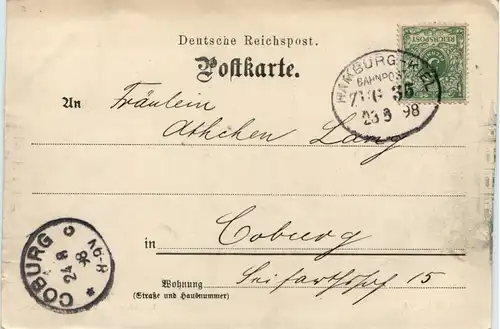 Deutsche Reichspost.
Postkarte.
REICHSPOST
HAMBURG-KIEL
BAHNPOST
ZUG 35
23 8 98
An Fräulein
Äthchen Lang
in Coburg
Wohnung Seifartshof 15
(Straße und Hausnummer)
COBURG
24 8
98